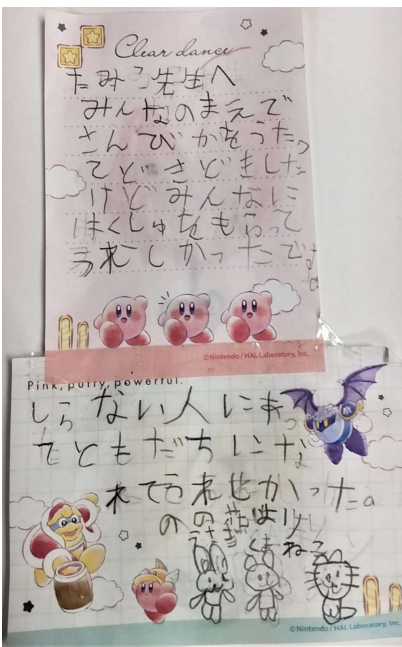 Clear dance
たみこ先生へ
みんなのまえで
さんびかをうたっ
てどきどきした
けどみんなに
はくしゅをもらって
うれしかったです。
©Nintendo / HAL Laboratory, Inc.
Pink, puffy, powerful.
しらない人にあっ
てともだちにな
れてうれしかった。
ののはより
うさぎ くま ねこ
©Nintendo / HAL Laboratory, Inc.